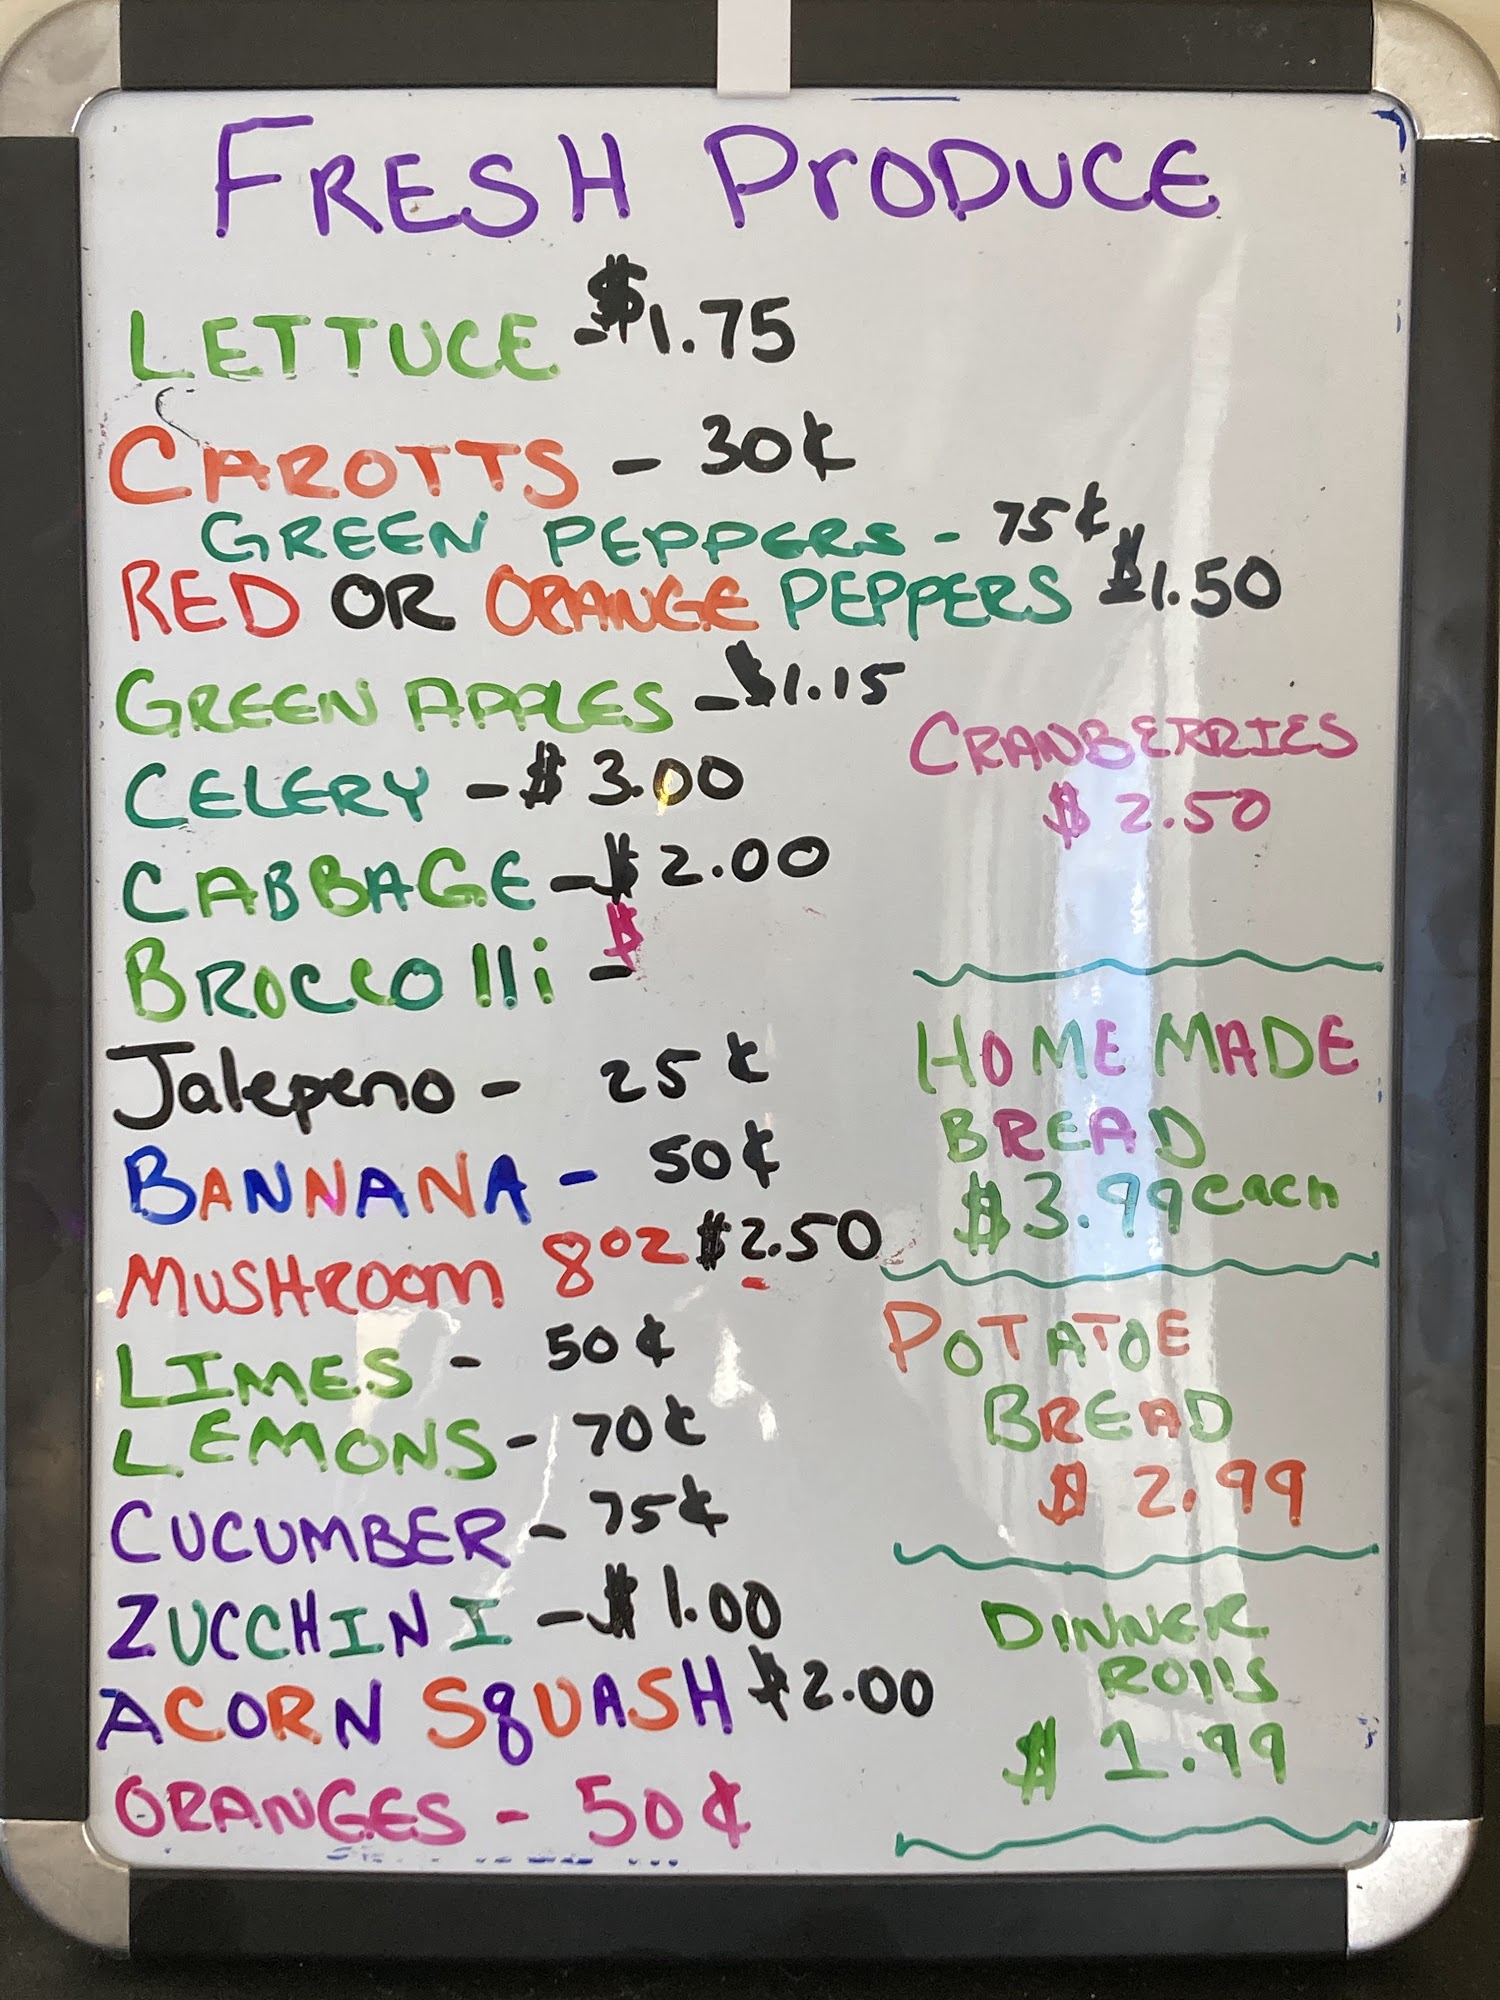 FRESH PRODUCE
LETTUCE - $1.75
CAROTTS - 30¢
GREEN PEPPERS - 75¢
RED OR ORANGE PEPPERS $1.50
GREEN APPLES - $1.15
CELERY - $3.00
CABBAGE - $2.00
BROCCOlli - $
Jalepeno - 25¢
BANNANA - 50¢
MUSHROOM 8oz $2.50
LIMES - 50¢
LEMONS - 70¢
CUCUMBER - 75¢
ZUCCHINI - $1.00
ACORN SqUASH $2.00
ORANGES - 50¢
CRANBERRIES
$2.50
HOMEMADE
BREAD
$3.99 each
POTATOE
BREAD
$2.99
DINNER
ROllS
$1.99